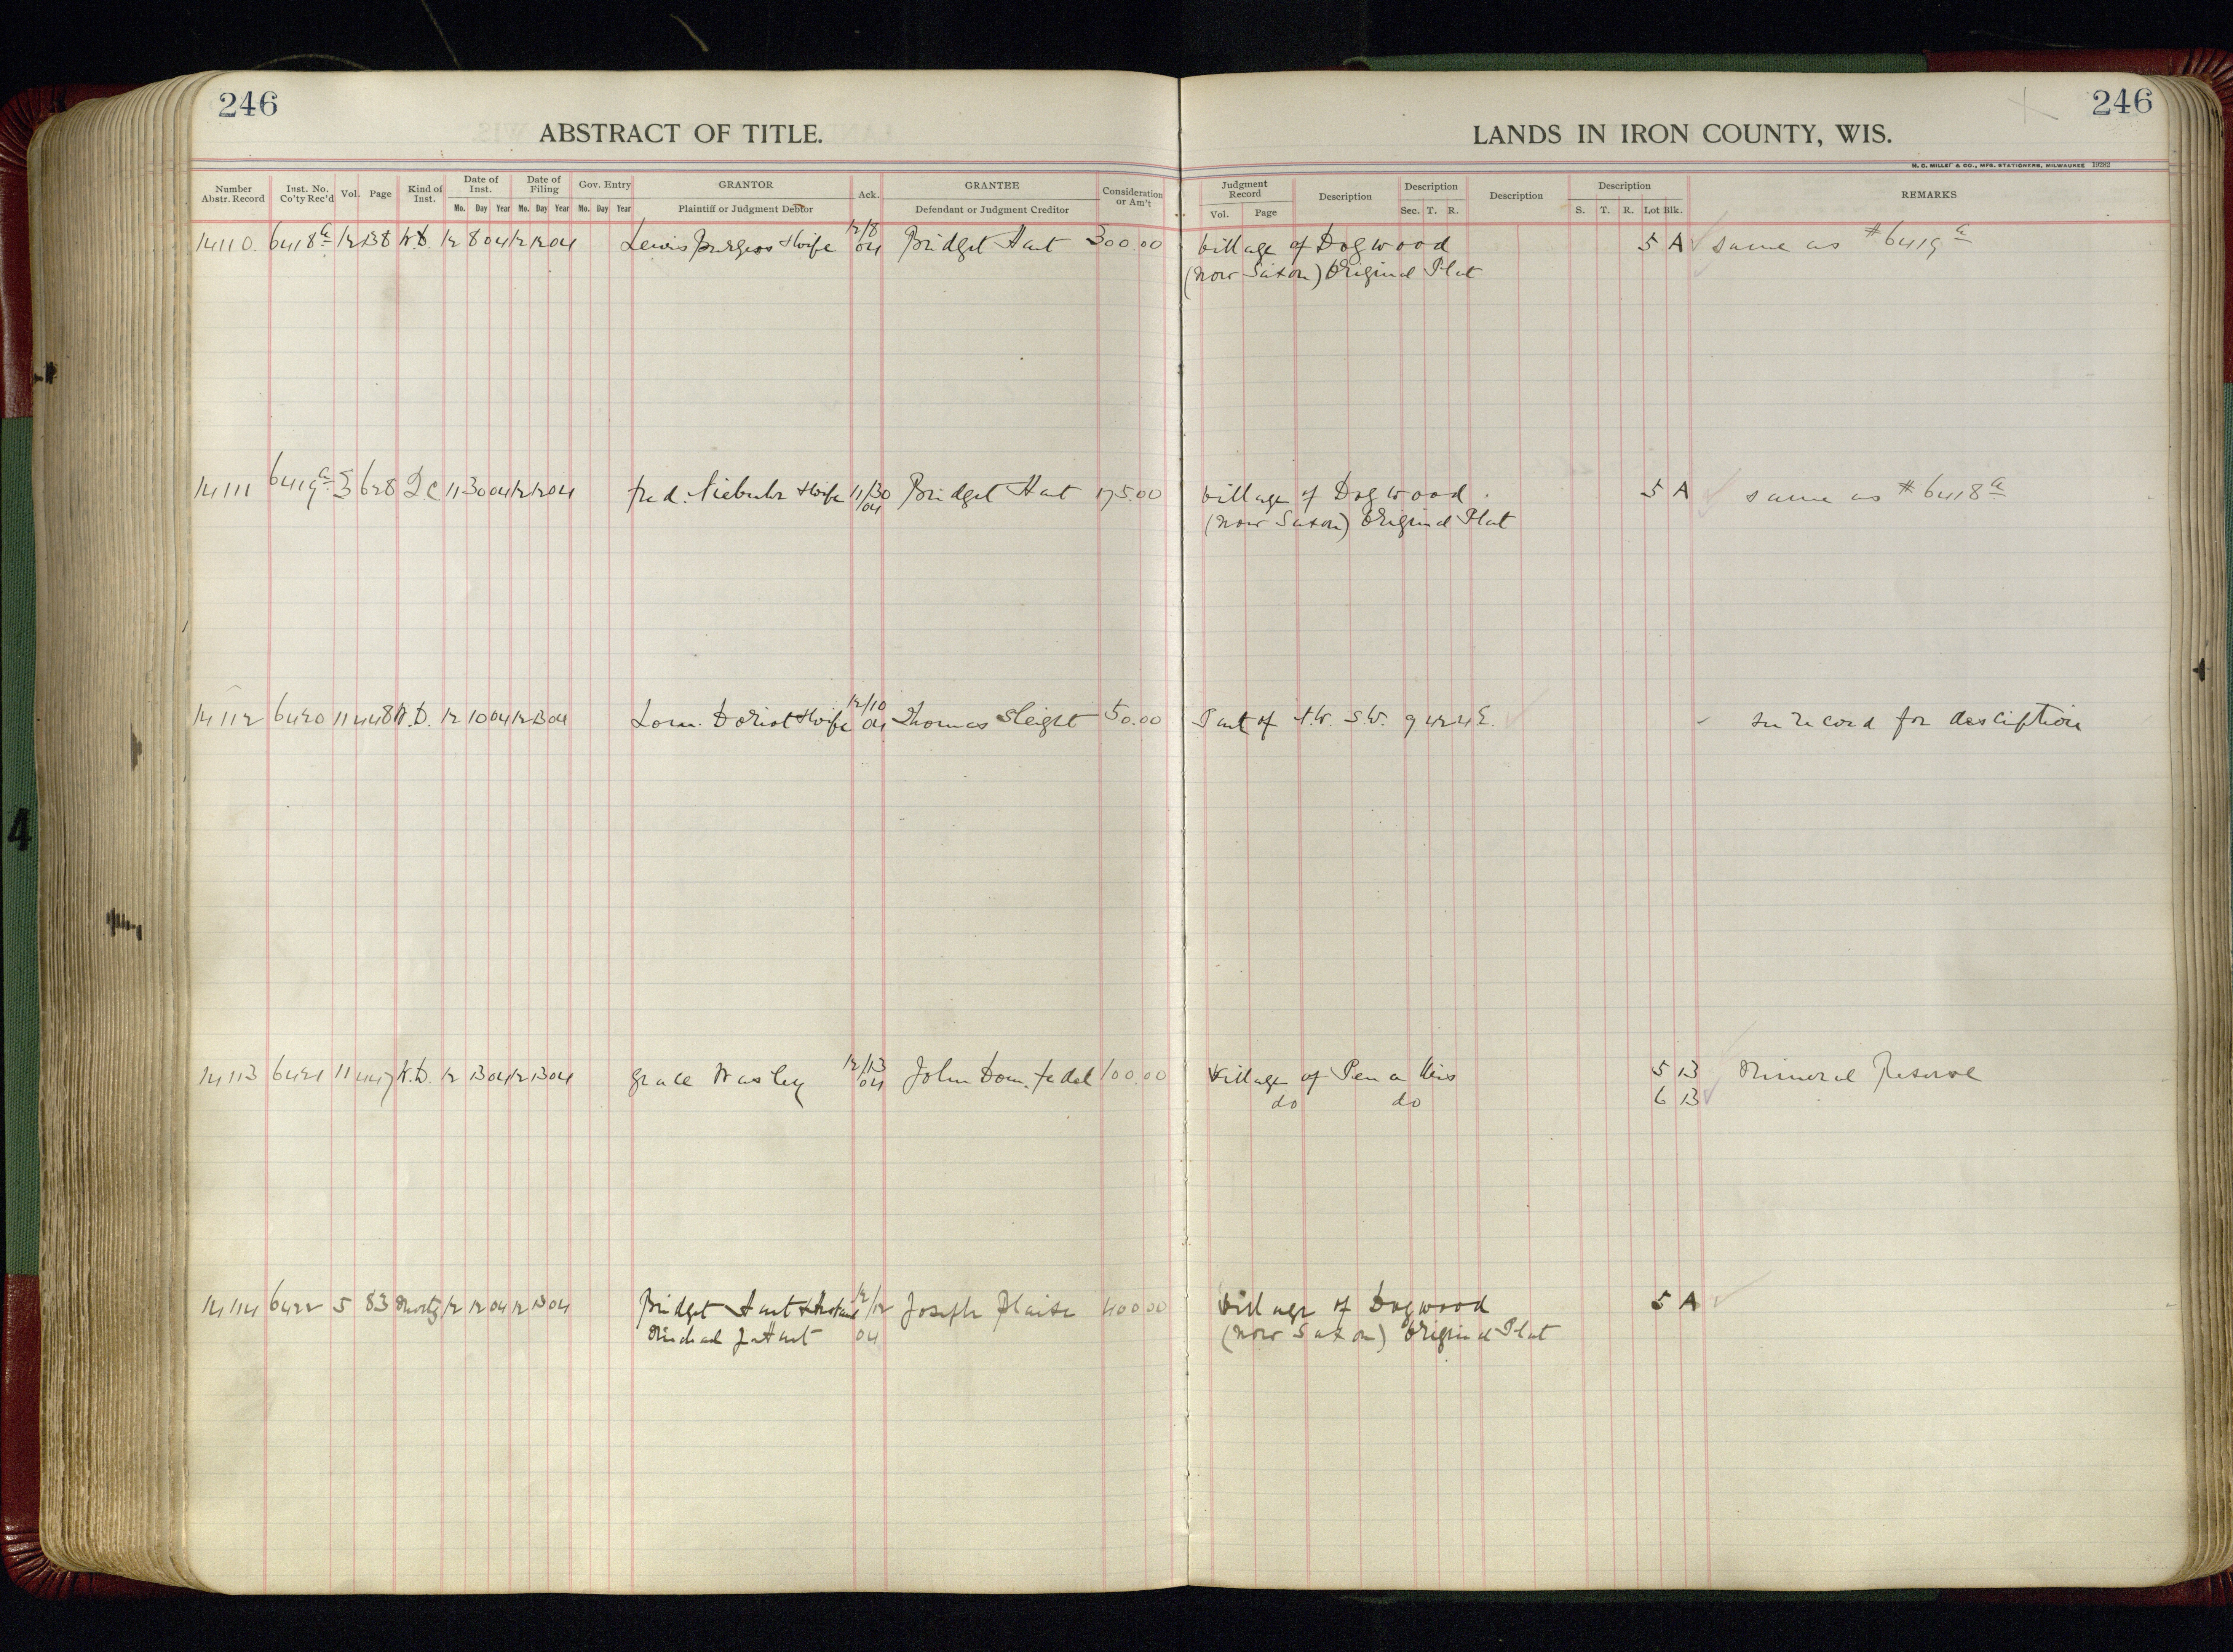 246
ABSTRACT OF TITLE.
LANDS IN IRON COUNTY, WIS.
246
H. C. MILLER CO., MFG. STATIONERS, MILWAUKEE 19282
Number Abstr. Record Inst. No. Co'ty Rec'd Vol. Page Kind of Inst. Date of Inst. Mo. Day Year Date of Filing Mo. Day Year Gov. Entry Mo. Day Year GRANTOR Plaintiff or Judgment Debtor Ack. GRANTEE Defendant or Judgment Creditor Consideration or Am't Judgment Record Vol. Page Description Description Sec. T. R. Description Description S. T. R. Lot Blk. REMARKS
14110. 6418a 12 138 W.D. 12 8 04 12 12 04 Lewis Burgess & wife 12/8 04 Bridget Hart 300.00 Village of Dogwood 5 A same as #6419a
(now Saxon) Original Plat
14111 6419a 3 628 Q C 11 30 04 12 12 04 Fred. Niebuhr & wife 11/30 04 Bridget Hart 175.00 Village of Dogwood 5 A same as #6418a
(now Saxon) Original Plat
14112 6420 11 448 W.D. 12 10 04 12 13 04 Doriot & wife 12/10 04 Thomas Sleight 50.00 Part of N.W. S.W. 9 42 4 E. see record for description
14113 6421 11 447 W.D. 12 13 04 12 13 04 Grace Wasley 12/13 04 John Dom. Fedel 100.00 Village of Pence Wis 5 13 Mineral Reserve
do do 6 13
14114 6422 5 83 Mortg 12 12 04 12 13 04 Bridget Hart & Husband 12/12 04 Joseph 400.00 Village of Dogwood 5 A
Michael J. Hart (now Saxon) Original Plat
4